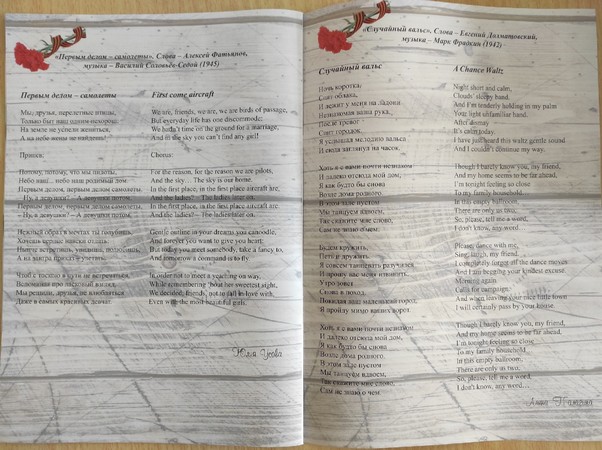 «Первым делом – самолеты». Слова – Алексей Фатьянов,
музыка – Василий Соловьёв-Седой (1945)
Первым делом – самолеты
Мы, друзья, перелетные птицы,
Только быт наш одним нехорош:
На земле не успели жениться,
А на небе жены не найдешь!
Припев:
Потому, потому, что мы пилоты,
Небо наш, небо наш родимый дом.
Первым делом, первым делом самолеты.
– Ну, а девушки? – А девушки потом.
Первым делом, первым делом самолеты.
– Ну, а девушки? – А девушки потом.
Нежный образ в мечтах ты голубишь,
Хочешь сердце навеки отдать.
Нынче встретишь, увидишь, полюбишь,
А на завтра приказ – улетать.
Чтоб с тоскою в пути не встречаться,
Вспоминая про ласковый взгляд,
Мы решили, друзья, не влюбляться
Даже в самых красивых девчат.
First come aircraft
We are, friends, we are, we are birds of passage,
But everyday life has one discommode:
We hadn't time on the ground for a marriage,
And in the sky you can't find any girl!
Chorus:
For the reason, for the reason we are pilots,
And the sky… The sky is our home.
In the first place, in the first place aircraft are,
And the ladies? – The ladies later on.
In the first place, in the first place aircraft are,
And the ladies? – The ladies later on.
Gentle outline in your dreams you canoodle,
And forever you want to give your heart;
But today you meet somebody, take a fancy to,
And tomorrow a command is to fly
In order not to meet a yearning on way,
While remembering 'bout her sweetest sight,
We decided, friends, not to fall in love with
Even with the most beautiful girls.
Юля Усова
«Случайный вальс». Слова – Евгений Долматовский,
музыка – Марк Фрадкин (1942)
Случайный вальс
Ночь коротка,
Спят облака,
И лежит у меня на ладони
Незнакомая ваша рука.
После тревог
Спит городок.
Я услышал мелодию вальса
И сюда заглянул на часок.
Хоть я с вами почти незнаком
И далеко отсюда мой дом,
Я как будто бы снова
Возле дома родного.
В этом зале пустом
Мы танцуем вдвоем,
Так скажите мне слово,
Сам не знаю о чем.
Будем кружить,
Петь и дружить.
Я совсем танцевать разучился
И прошу вас меня извинить.
Утро зовет
Снова в поход,
Покидая ваш маленький город,
Я пройду мимо ваших ворот.
Хоть я с вами почти незнаком
И далеко отсюда мой дом,
Я как будто бы снова
Возле дома родного.
В этом зале пустом
Мы танцуем вдвоем,
Так скажите мне слово,
Сам не знаю о чем
A Chance Waltz
Night short and calm,
Clouds' sleepy band.
And I'm tenderly holding in my palm
Your light unfamiliar hand.
After dismay
It's calm today.
I have just heard this waltz gentle sound
And I couldn't continue my way.
Though I barely know you, my friend,
And my home seems to be far ahead,
I'm tonight feeling so close
To my family household.
In this empty ballroom,
There are only us two,
So, please, tell me a word,
I don't know, any word.
Please, dance with me,
Sing, laugh, my friend.
I completely forgot all the dance moves
And I am begging your kindest excuse.
Morning again
Calls for campaign.
And when leaving your nice little town
I will certainly pass by your house.
Though I barely know you, my friend,
And my home seems to be far ahead,
I'm tonight feeling so close
To my family household
In this empty ballroom,
There are only us two,
So, please, tell me a word,
I don't know, any word…
Анна